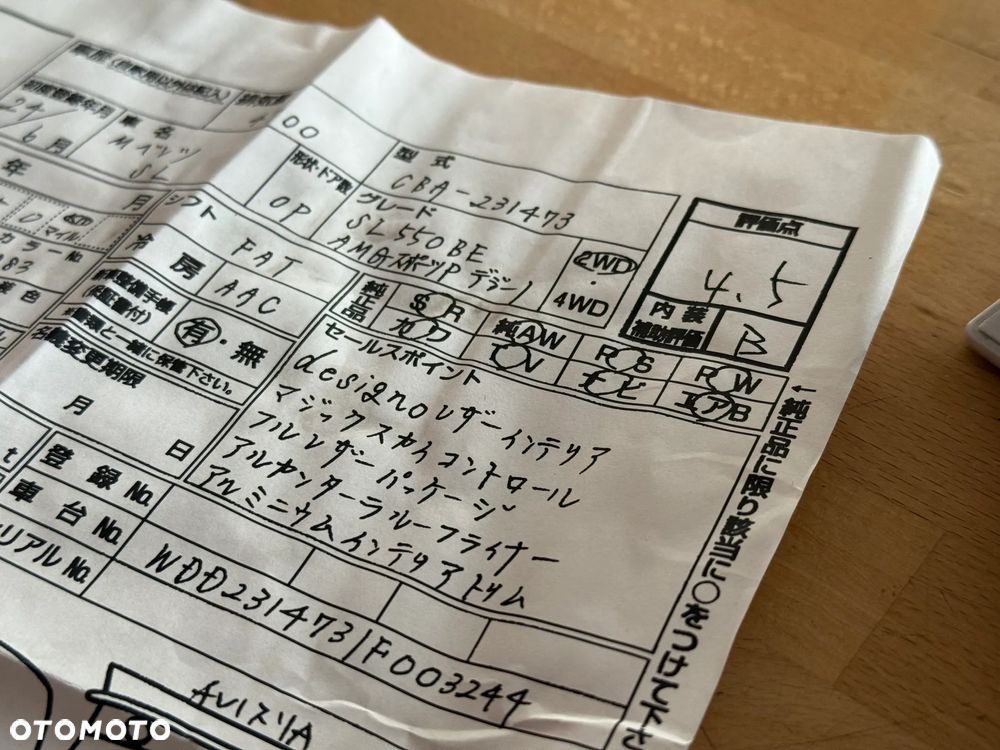 車歴(自家用以外は記入)
初度登録年月
車名
24/
6月
Mベンツ
SL
00
形状・ドア数
OP
型式
CBA-231473
グレード
SL550BE
AMGスポーツP デジーノ
2WD
・
4WD
評価点
4.5
内装
補助評価
B
年
月
シフト
FAT
冷房
AAC
マイル
カラーNo
純正品
SR
カワ
純AW
TV
PS
ナビ
PW
エアB
有・無
※車検と一緒に保管下さい。
名義変更期限
月
日
セールスポイント
designoレザーインテリア
マジックスカイコントロール
フルレザーパッケージ
アルカンターラルーフライナー
アルミニウムインテリアトリム
←純正品に限り該当に○をつけて下さ
登録No.
車台No.
WDD231473/F003244
シリアルNo.
OTOMOTO